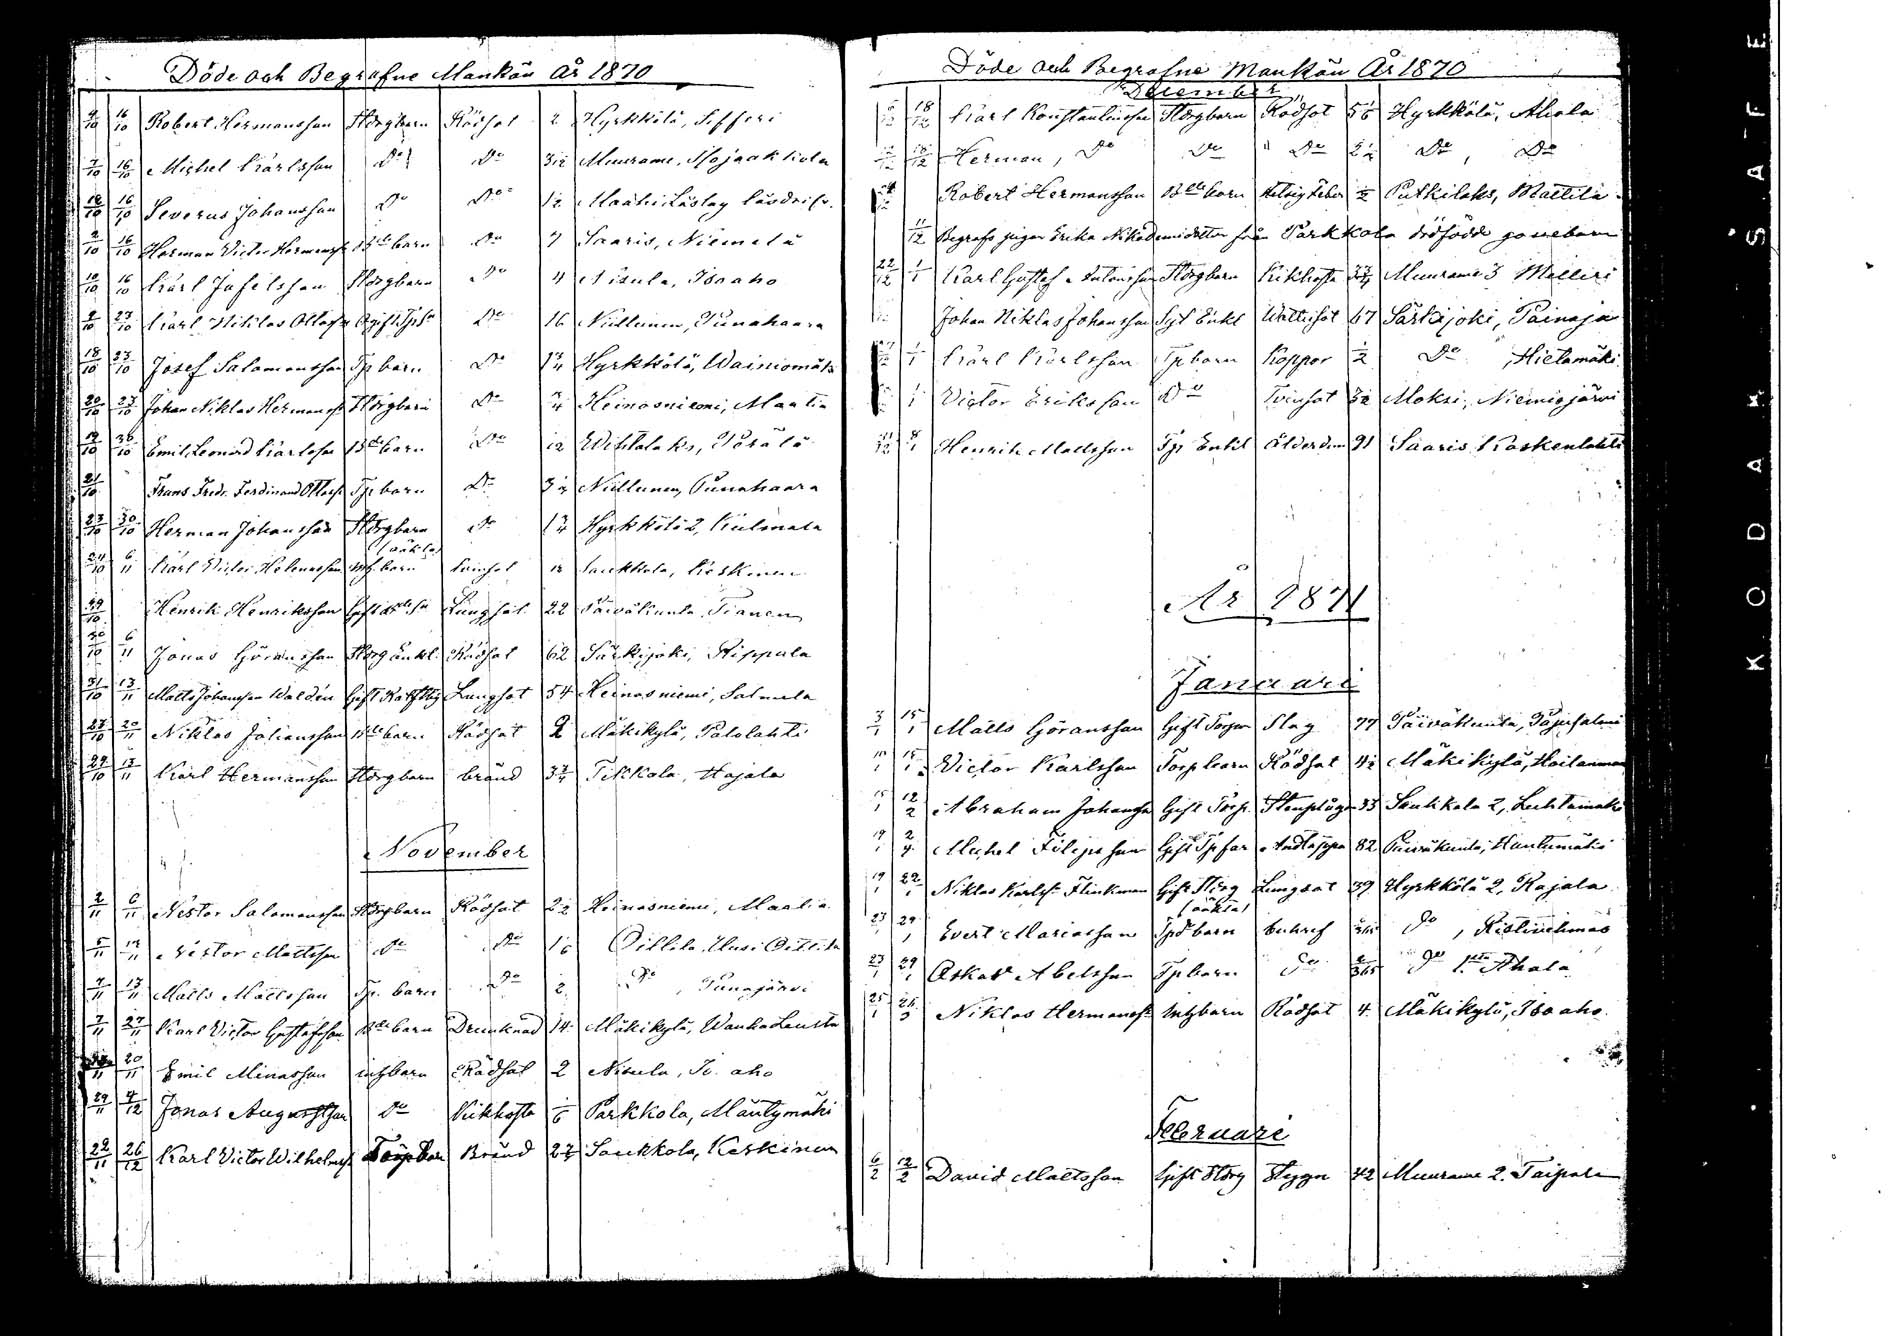 Döde och Begrafne Mankön År 1870
9/10 16/10 Robert Hermansson Storgbarn Rödsot 2 Hyrkkölä, Sifferi
7/10 16/10 Michel Karlsson Do Do 3 1/2 Muurame,
16/10 Severus Johansson Do Do 1/2
2/10 16/10 Herman Victor Hermanss. Bdebarn Do 7 Saaris, Niemelä
10/10 16/10 Karl Storgbarn Do 4 Nisula, Isoaho
2/10 23/10 Karl Niklas Ottoss. Do 16 Niittunen, Punahaara
18/10 23/10 Josef Salomonsson Tpbarn Do 1 3/4 Hyrkkölä, Wainiomäki
20/10 23/10 Johan Niklas Hermanss. Storgbarn Do 3/4 Heinosniemi, Maatia
19/10 30/10 Emil Leonard Karlsson Bdebarn Do Wihtalaks,
21/10 Frans Fredr. Ferdinand Ottoss. Tpbarn Do Niittunen, Punahaara
23/10 30/10 Herman Johansson Storgbarn Do 1 3/4 Hyrkkölä 2,
(oäkta)
24/10 6/11 Karl Victor Helenasson inhbarn Tvinsot Saukkola, Keskinen
10 Henrik Henriksson Lungsot 22 Päiväkunta, Tianen
30/10 6/11 Jonas Göransson Storg Enkl. Rödsot 62 Särkijoki, Piippula
31/10 13/11 Matts Johansson Waldén Gift Lungsot 54 Heinosniemi, Salmela
27/10 20/11 Niklas Johansson Bdebarn Rödsot 2 Mäkikylä, Palolahti
29/10 13/11 Karl Hermansson Storgbarn bränd 3 3/4 Tikkala, Hajala
November
2/11 6/11 Nestor Salomonsson Storgbarn Rödsot 2 1/2 Heinosniemi, Maatia
5/11 Nestor Mattsson Do Do 1 1/6 Oittila, Uusi Oittila
7/11 13/11 Matts Mattsson Tp. barn Do 2 Do, Punajärvi
7/11 27/11 Karl Victor Gustafsson Bdebarn Drunknad 14 Mäkikylä, WanhaLausta
11 20/11 Emil Minasson inhbarn Rödsot 2 Nisula, Is. aho
29/11 4/12 Jonas Augustsson Do Kikhosta 1/6 Parkkola, Mäntymäki
22/11 26/12 Karl Victor Wilhelmss. Torpbar Bränd Saukkola, Keskinen
Döde och Begrafne Mankön År 1870
December
18/12 Karl Konstantinsson Storgbarn Rödsot 5 1/6 Hyrkkölä, Ahola
18/12 Herman, Do Do " Do Do, Do
Robert Hermansson Bdebarn Hetsig Feber 1/2 Putkilaks, Mattila
11/12 Begrafs pigan Erika Nikodemidotter från Parkkola dödfödde gossebarn
22/12 1/1 Karl Gustaf Antonsson Storgbarn Kikhosta Muurame 3 Melleri
Johan Niklas Johansson Syt Enkl Wattusot 67 Särkijoki, Painaja
1/1 Karl Karlsson Tpbarn Koppor 1/2 Do, Hietamäki
1/1 Victor Eriksson Do Tvinsot Moksi, Niemisjärvi
31/12 8/1 Henrik Mattsson Tp Enkl Ålderdom 91 Saaris Koskenlahti
År 1871
Januari
3/1 15/1 Matts Göransson Gift Torpar Slag 77 Päiväkunta, Pajusalmi
11/1 15/1 Victor Karlsson Torpbarn Rödsot 4 1/2 Mäkikylä,
15/1 12/2 Abraham Johansson Gift Torp. Stenplåga 33 Saukkola 2, Luhtamäki
19/1 2/4 Michel Filipsson Gift Tpfar Andtäppa 82 Päiväkunta, Huutumäki
19/1 22/1 Niklas Karlss. Flinkman Gift Storg Lungsot 39 Hyrkkölä 2, Rajala
(oäkta)
23/1 29/1 Evert Mariasson Tpdbarn bukref Do, Ristivehmas
23/1 29/1 Oskar Abelsson Tpbarn Do 2/365 Do 1sta Ahola
25/1 Niklas Hermanss. Inhbarn Rödsot 4 Mäkikylä, Isoaho
Februari
6/2 12/2 David Mattsson Gift Storg Styggn 42 Muurame 2. Taipale
KODAK SAFE